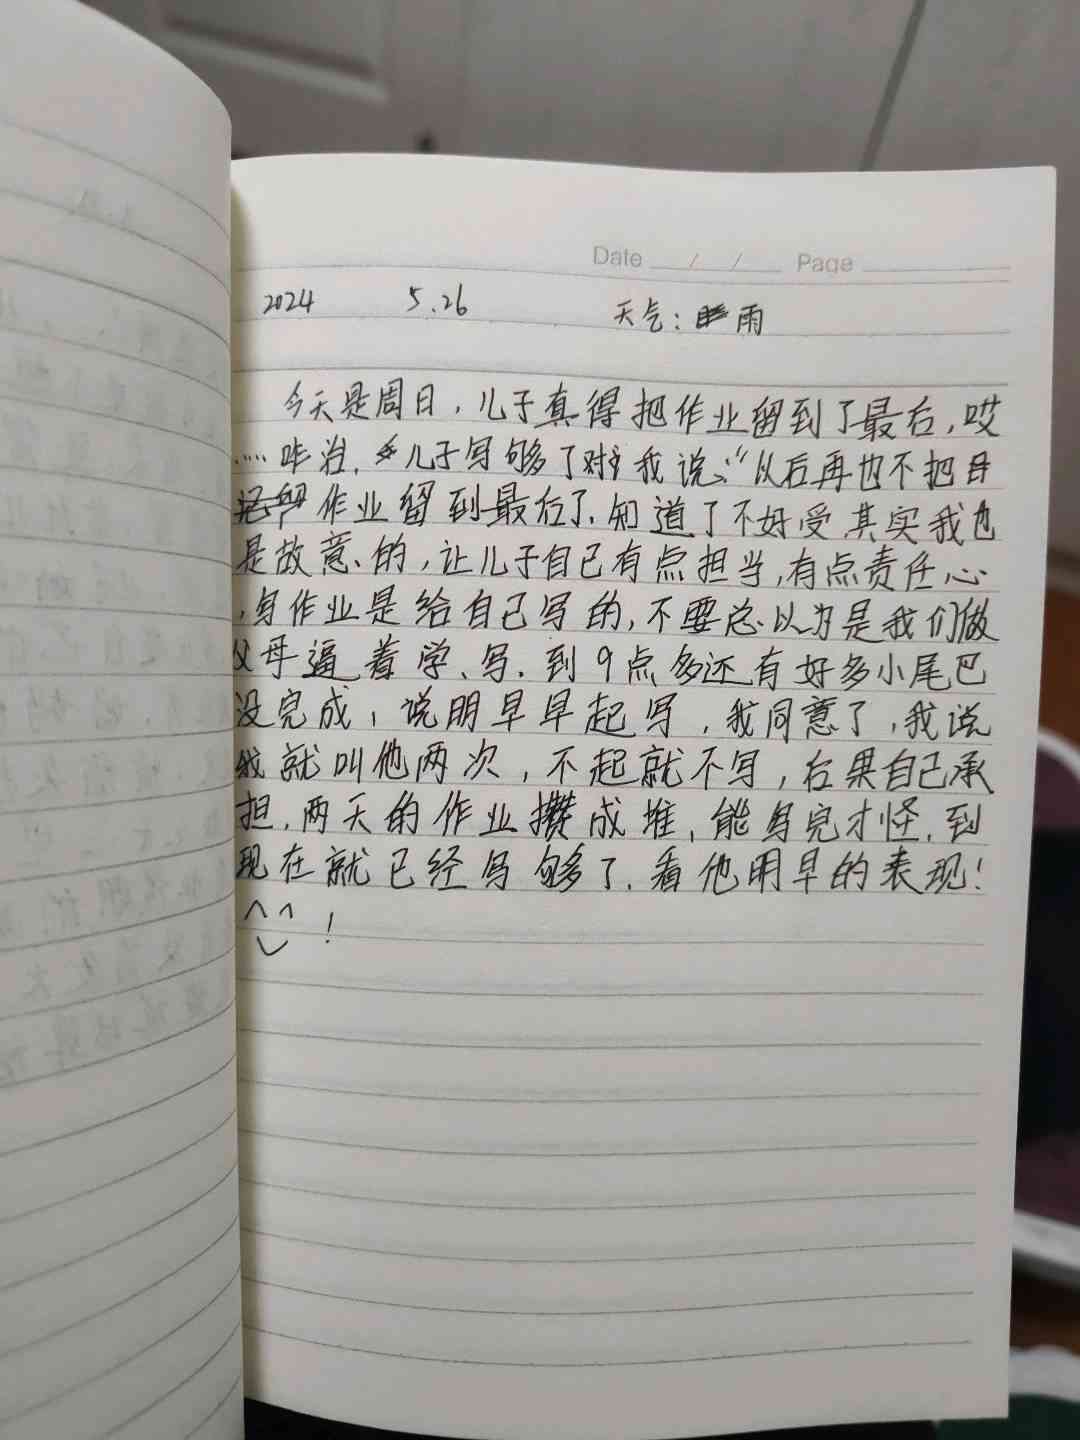 Date / / Page
2024 5.26 天气: 雨
今天是周日,儿子真得把作业留到了最后,哎
..... 咋治,儿子写够了对我说:“以后再也不把
作业留到最后了.知道了不好受其实我也
是故意的,让儿子自己有点担当,有点责任心
,写作业是给自己写的,不要总以为是我们做
父母逼着学、写.到9点多还有好多小尾巴
没完成,说明早早起写,我同意了,我说
我就叫他两次,不起就不写,后果自己承
担,两天的作业攒成堆,能写完才怪,到
现在就已经写够了.看他明早的表现!
^ ^ !